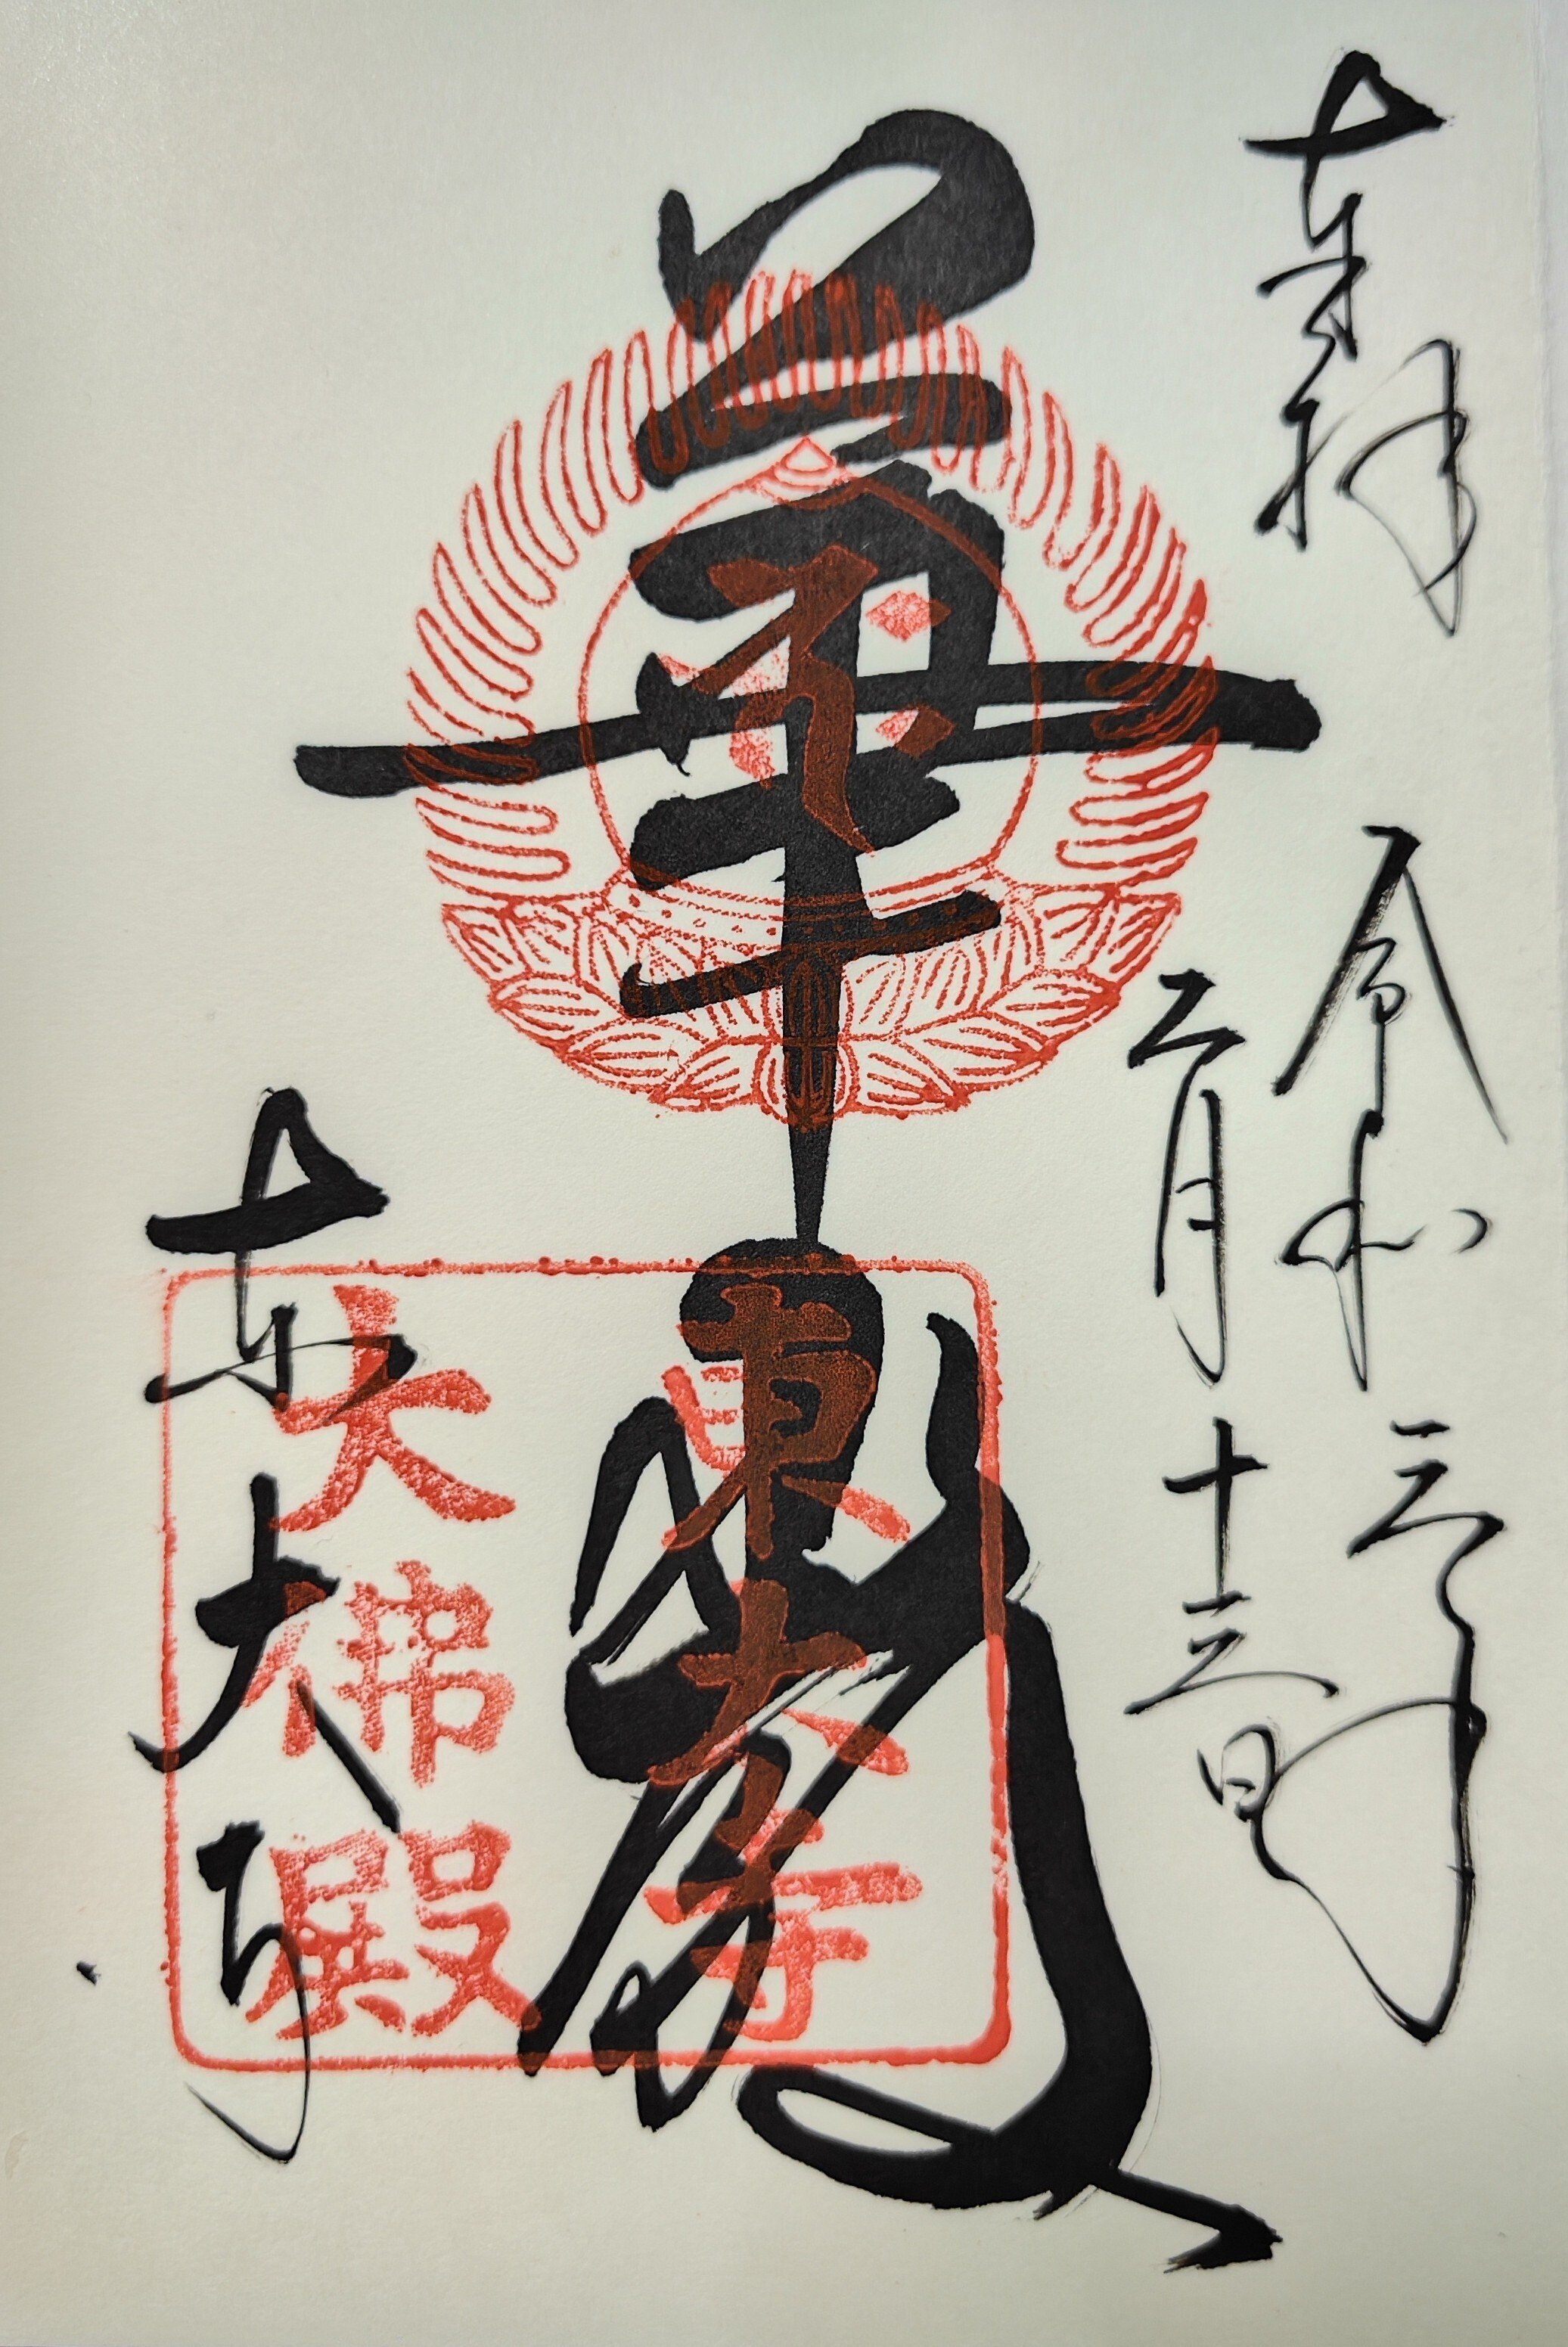 奉拝
令和三年
二月十三日
華嚴
東大寺
東大寺
大佛殿